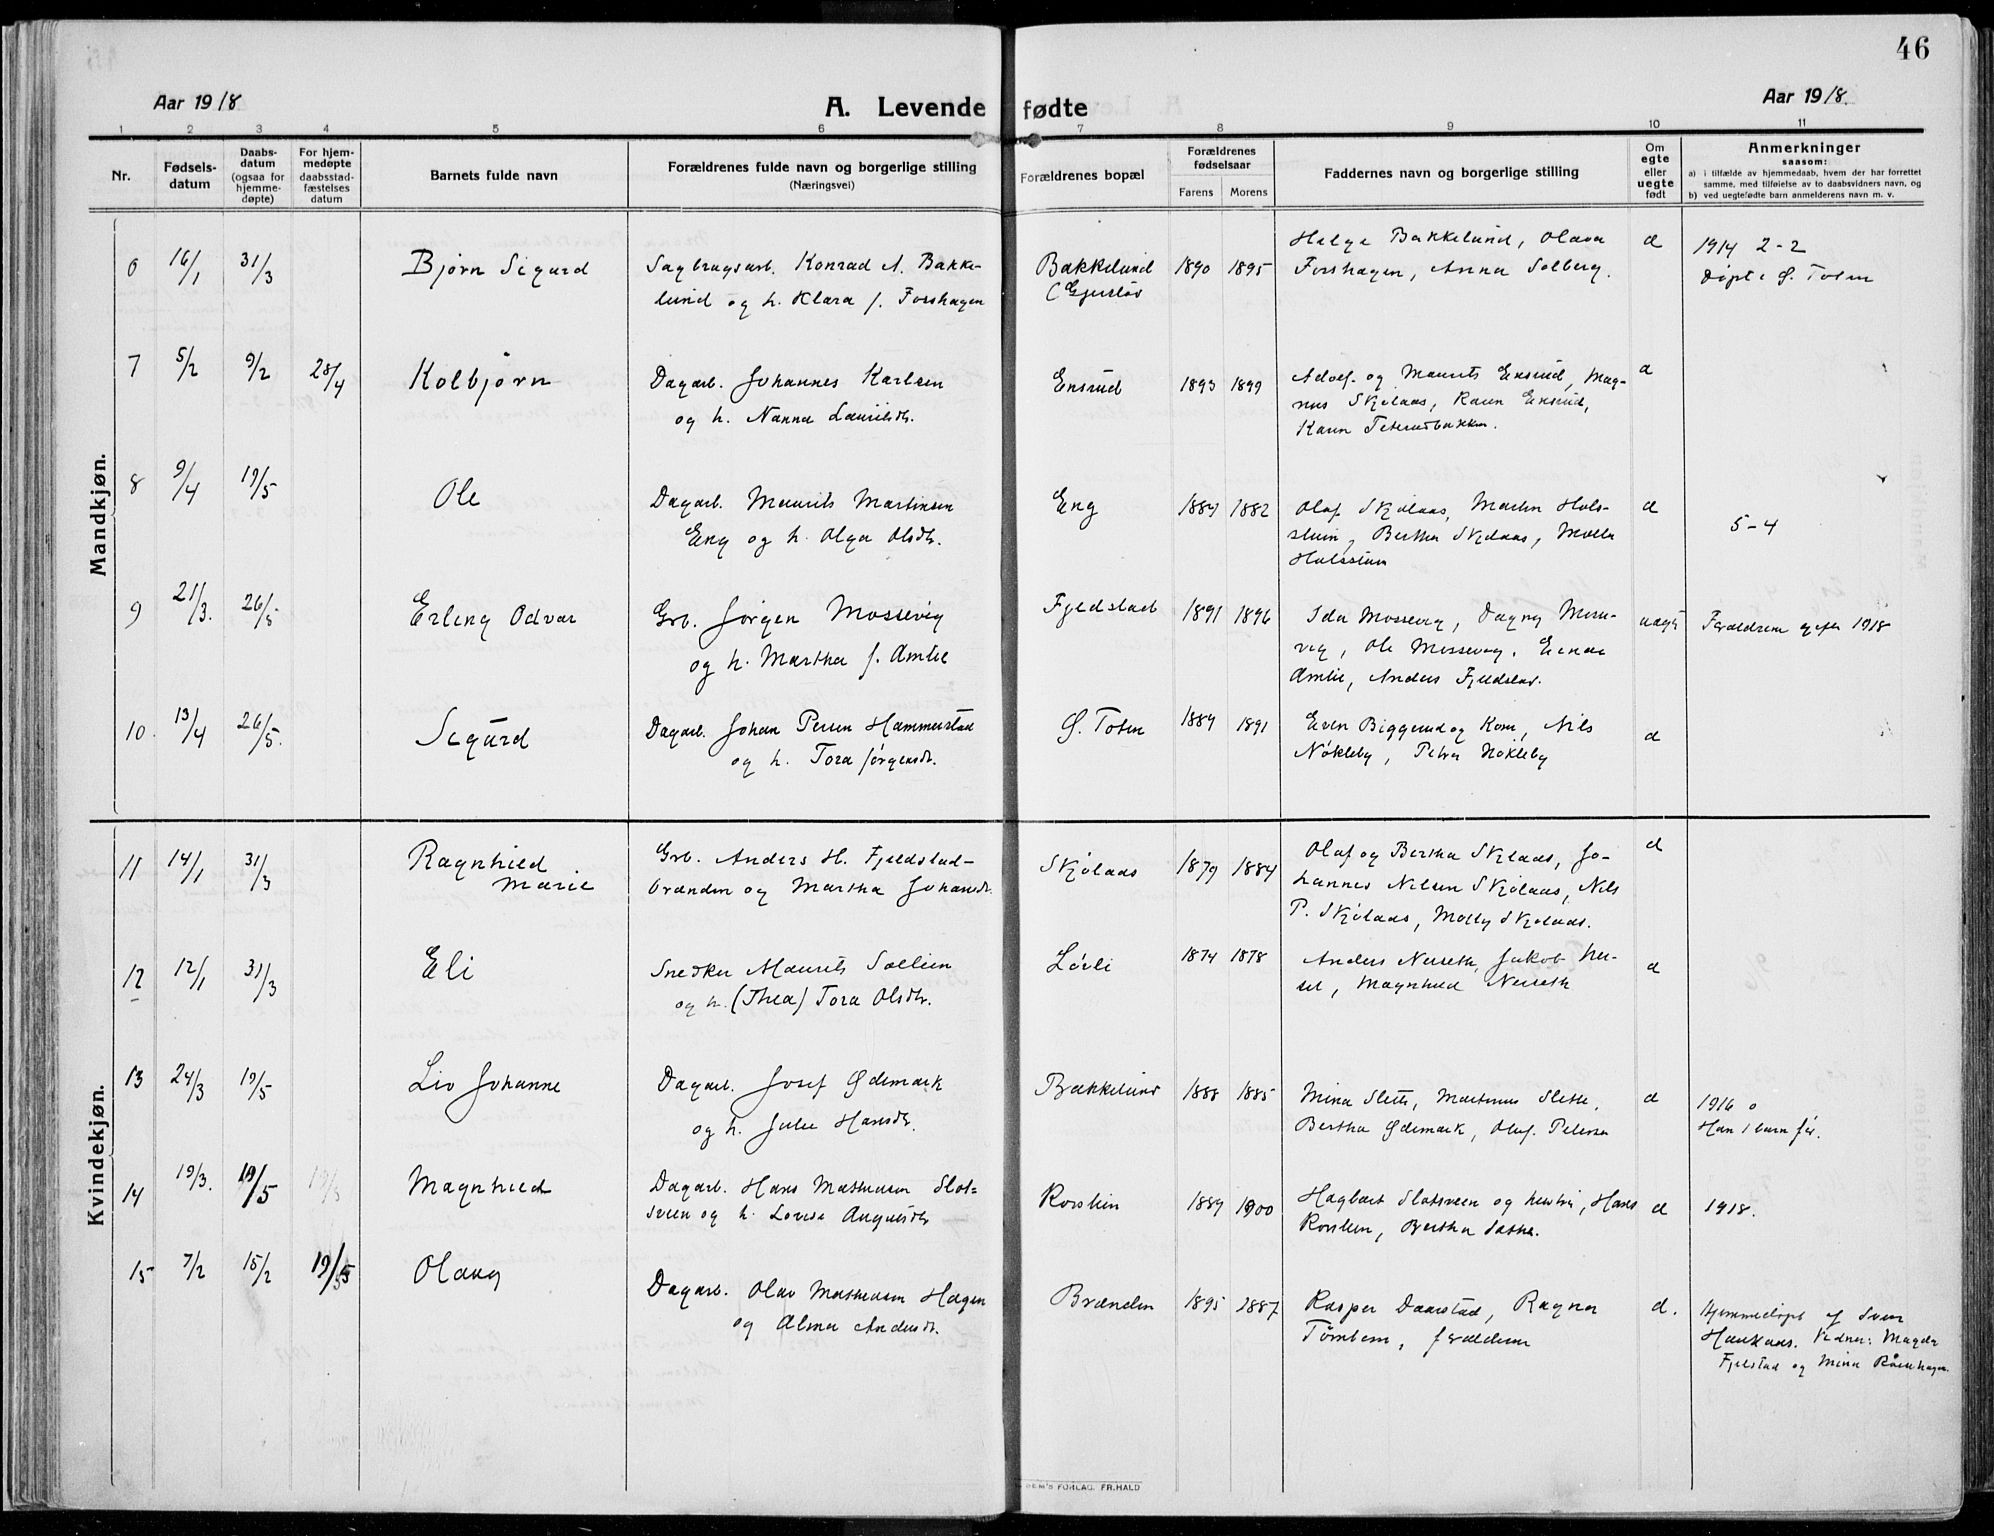 46
Aar 1918
A. Levende fødte
Aar 1918.
1 2 3 4 5 6 7 8 9 10 11
Nr.
Fødsels-
datum
Daabs-
datum
(ogsaa for
hjemme-
døpte)
For hjem-
medøpte
daabsstad-
fæstelses
datum
Barnets fulde navn
Forældrenes fulde navn og borgerlige stilling
(Næringsvei)
Forældrenes bopæl
Forældrenes
fødselsaar
Farens Morens
Faddernes navn og borgerlige stilling
Om
egte
eller
uegte
født
Anmerkninger
saasom:
a) i tilfælde av hjemmedaab, hvem der har forrettet
samme, med tilføielse av to daabsvidners navn, og
b) ved uegtefødte barn anmelderens navn m. v.
Mandkjøn.
6 16/1 31/3 Bjørn Sigurd
Sagbrugsarb. Konrad A. Bakke-
lund og h. Klara f. Forshagen
Bakkelund
1890 1895
Helge Bakkelund, Olava
Forshagen, Anna Solberg.
d
1914 2-2
Døpt i Ø. Toten
7 5/2 9/2 28/4 Kolbjørn
Dagarb. Johannes Karlsen
og h. Nanna Lauritsdtr.
Ensrud
1893 1899
Adolf og Maurits Ensrud, Mag-
nus Skjølaas, Karen Ensrud,
Karen
d
8 9/4 19/5 Ole
Dagarb. Maurits Martinsen
Eng og h. Olga Olsdtr.
Eng
1889 1882
Olaf Skjølaas, Martin Hols-
stuen, Bertha Skjølaas, Molla
Holsstuen
d
5-4
9 21/3. 26/5 Erling Odvar
Grb. Jørgen Mossevig
og h. Martha f. Amlie
Fjeldstad
1891 1896
Ida Mossevig, Dagny Mosse-
vig, Ole Mossevig, Einar
Amlie, Anders Fjeldstad.
uegte
Forældrene gift 1918
10. 13/4 26/5. Sigurd
Dagarb. Johan Persen Hammerstad
og h. Tora Jørgensdtr.
Ø. Toten
1889 1891
Even Biggerud og Kone, Nils
Nøkleby, Petra Nøkleby
d
Kvindekjøn.
11 14/1 31/3 Ragnhild
Marie
Grb. Anders H. Fjeldstad-
brænden og Martha Johansdtr.
Skjølaas
1879 1884
Olaf og Bertha Skjølaas, Jo-
hannes Nilsen Skjølaas, Nils
P. Skjølaas, Molly Skjølaas.
d
12 12/1 31/3 Eli
Snedker Maurits Sollien
og h. (Thea) Tora Olsdtr.
Lørli
1874 1878
Anders Nerseth, Jakob Ner-
set, Magnhild Nerseth
d
13 24/3 19/5 Liv Johanne
Dagarb. Josef Ødemark
og h. Julie Hansdtr.
Bakkelund
1888 1885
Mina Slette, Martinus Slette,
Bertha Ødemark, Oluf Petersen
d
1916 0
Han 1 barn før.
14 19/3. 19/5 Magnhild
Dagarb. Hans Mathiasen Slots-
sveen og h. Lovise Augustdtr
Roslien
1889 1900
Hagbart Slotsveen og hustru, Hans
Roslien, Bertha Sæthe.
d
1918.
15 7/2 15/2 19/5 Olaug
Dagarb. Olav Mathiasen Hagen
og Alma Andersdtr.
Brænden
1895 1887
Kasper Daarstad, Ragna
Tømten, forældrene
d.
Hjemmedøpt af Sven
Haukaas. Vidner: Magda
Fjelstad og Mina
FORLAG. FR. HALD